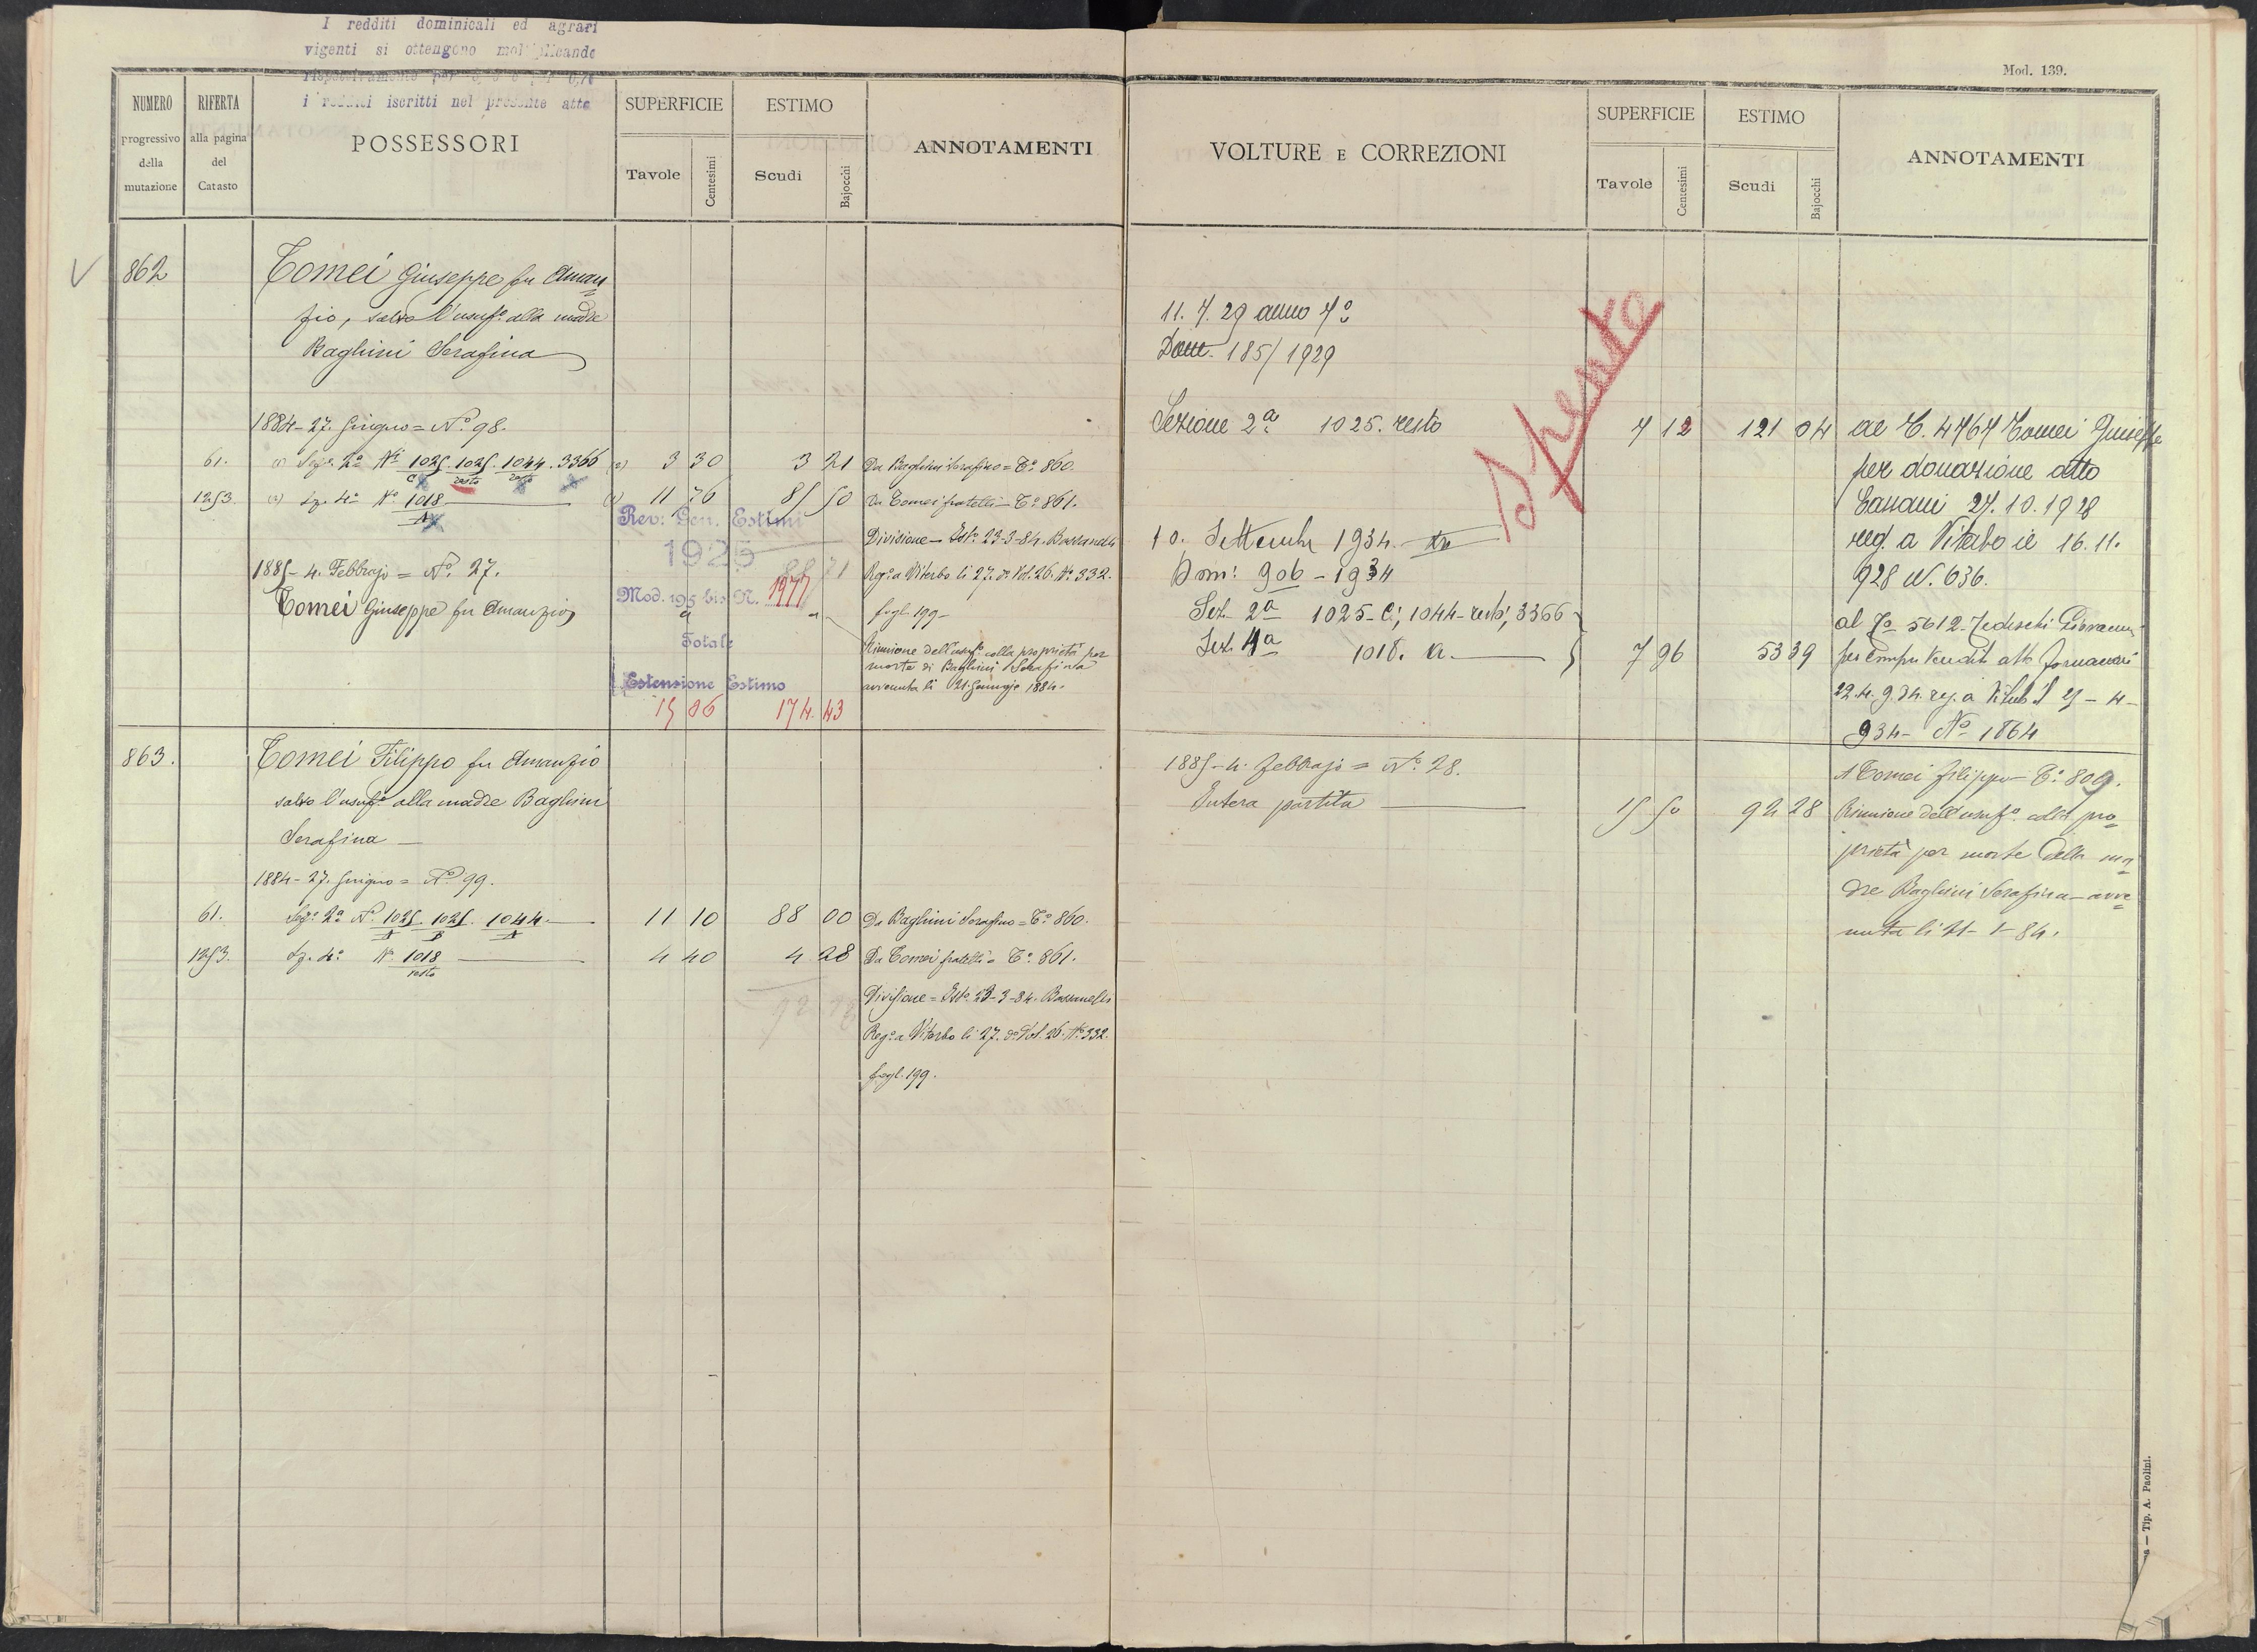 I redditi dominicali ed agrari
vigenti si ottengono moltiplicando
rispettivamente per
i redditi iscritti nel presente atto
NUMERO progressivo della mutazione
RIFERTA alla pagina del Catasto
POSSESSORI
SUPERFICIE
Tavole Centesimi
ESTIMO
Scudi Bajocchi
ANNOTAMENTI
862 Tomei Giuseppe fu Aman=
zio, salvo l'usuf.o alla madre
Baglini Serafina
1884 - 27. Giugno = N.o 98.
61. (1) Sez.e 2a Ni 1025/C . 1025/resto . 1044/resto . 3366 (2) 3 30 3 21 Da Baglini Serafino = T.o 860.
1253. (2) Sz. 4a No 1018/A (1) 11 76 85 50 Da Tomei fratelli = T.o 861.
Rev: Gen. Estimi
1925
88 71
Mod. 195 bis N. 1977
Totale
Estensione Estimo
15 06 174.43
Divisione = Ist.o 23-3-84. Bassanelli
Reg.o a Viterbo li 27. do Vol. 26. No 332.
fogl. 199 -
1885 - 4. Febbrajo = No. 27.
Tomei Giuseppe fu Amanzio
Riunione dell'usuf.o colla proprietà per
morte di Baglini Serafina
avvenuta li 21. Gennajo 1884.
863. Tomei Filippo fu Amanzio
salvo l'usuf.o alla madre Baglini
Serafina
1884 - 27. Giugno = No 99.
61. Sez.e 2a No. 1025/A . 1025/B . 1044/A 11 10 88 00 Da Baglini Serafino = T.o 860.
1253. Sz. 4a No 1018/resto 4 40 4 28 Da Tomei fratelli = T.o 861.
92 28
Divisione = Ist.o 23-3-84. Bassanelli
Reg.o a Viterbo li 27. do Vol. 26. No 332.
fogl. 199.
Mod. 139.
VOLTURE E CORREZIONI
SUPERFICIE
Tavole Centesimi
ESTIMO
Scudi Bajocchi
ANNOTAMENTI
11. 7. 29 anno 7o
Dom. 185/1929
Spento
Sezione 2a 1025. resto 7 12 121 04 al T. 4767 Tomei Giuseppe
per donazione atto
Cassani 27.10.1928
reg. a Viterbo il 16.11.
928 N. 636.
10. Settembre 1934.
Dom: 906 - 1934
Sez. 2a 1025-C; 1044-resto; 3366
Sez. 4a 1018. A 7 96 53 39
al To 5612 Tedeschi Giovanni
per compra vendita atto Fornaciari
22.4.934. reg. a Viterbo il 25 - 4 -
934 - No 1864
1885 - 4. Febbrajo = No. 28.
Intera partita 15 50 92 28
A Tomei Filippo = T.o 809.
Riunione dell'usuf.o colla pro=
prietà per morte della ma=
dre Baglini Serafina - avve=
nuta li 21 - 1 - 84.
Tip. A. Paolini.